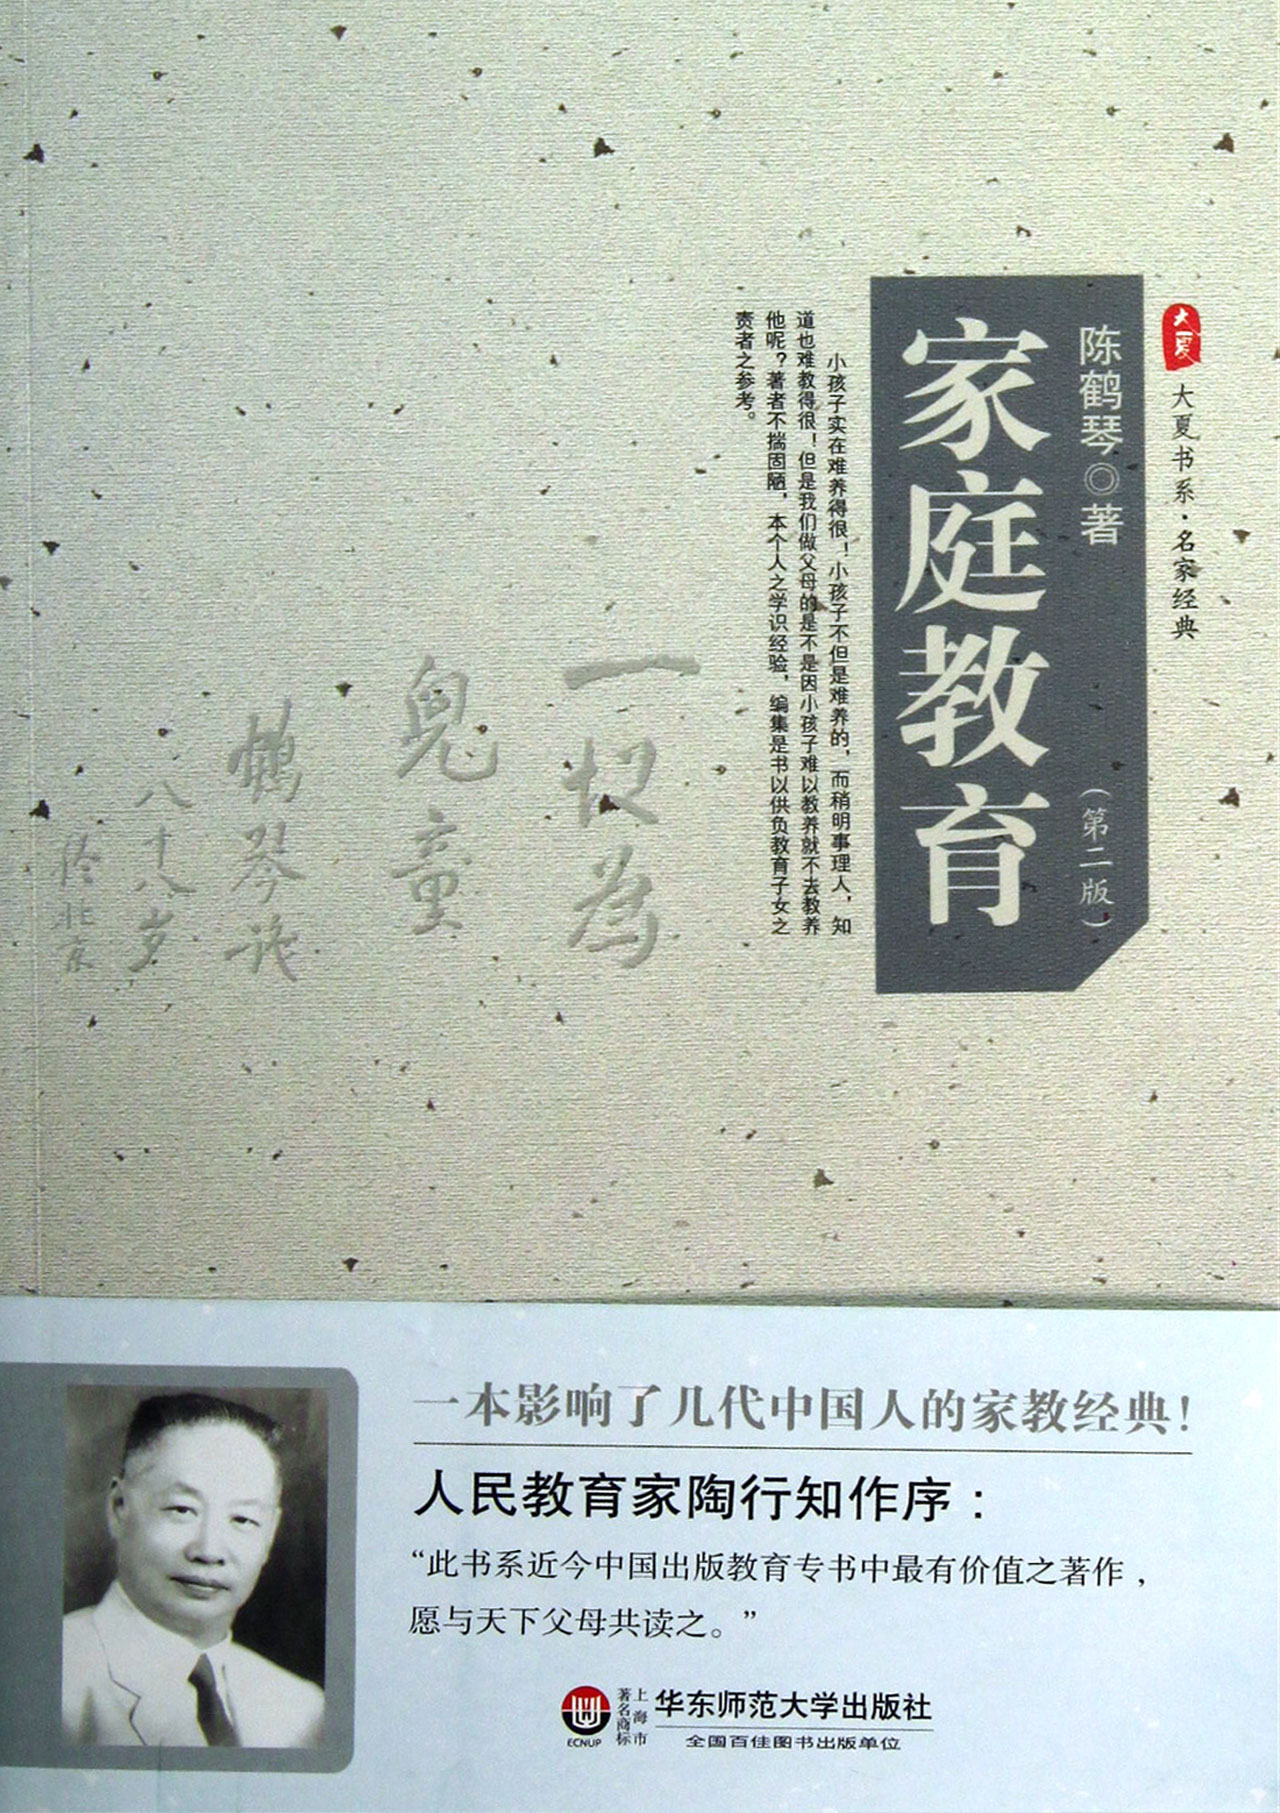 大夏
大夏书系·名家经典
陈鹤琴◎著
(第二版)
家庭教育
小孩子实在难养得很！小孩子不但是难养的，而稍明事理人，知
道也难教得很！但是我们做父母的是不是因小孩子难以教养就不去教养
他呢？著者不揣固陋，本个人之学识经验，编集是书以供负教育子女之
责者之参考。
一切为
兒童
鹤琴
八十八岁
北京
一本影响了几代中国人的家教经典！
人民教育家陶行知作序：
“此书系近今中国出版教育专书中最有价值之著作，
愿与天下父母共读之。”
ECNUP
上海市
著名商标
华东师范大学出版社
全国百佳图书出版单位